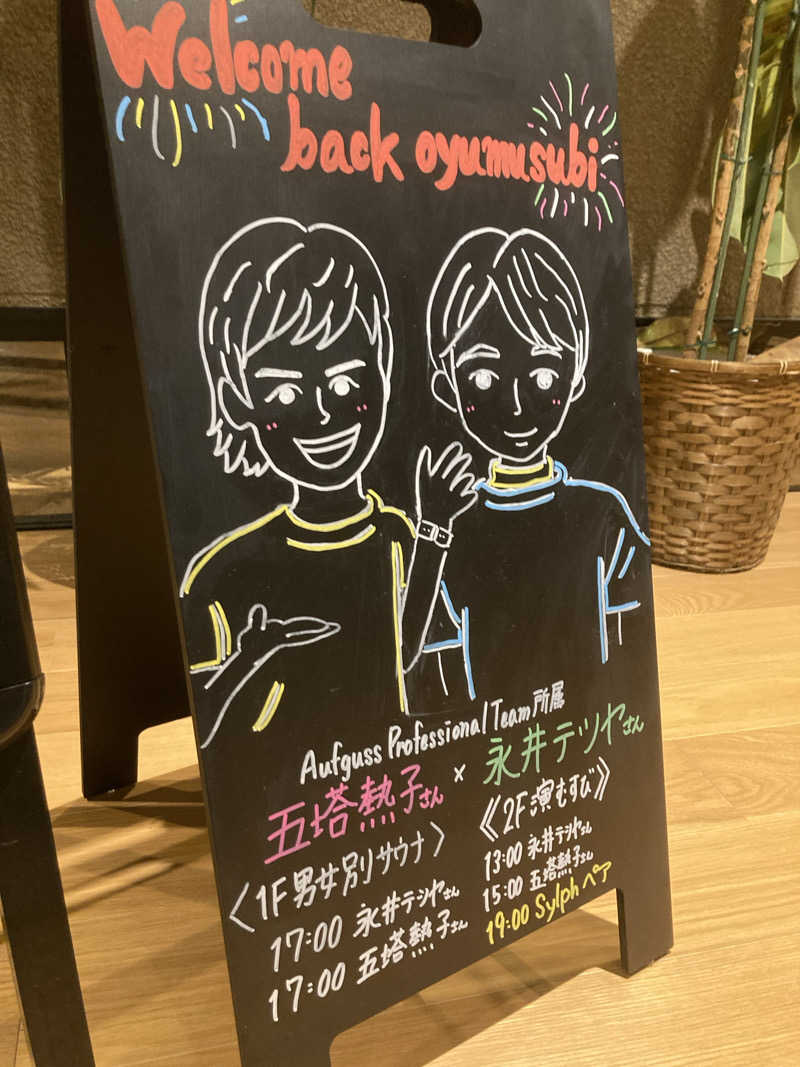 Welcome
back oyumusubi
Aufguss Professional Team所属
五塔熱子さん × 永井テツヤさん
〈1F男女別サウナ〉
17:00 永井テツヤさん
17:00 五塔熱子さん
《2F 演むすび》
13:00 永井テツヤさん
15:00 五塔熱子さん
19:00 Sylphペア